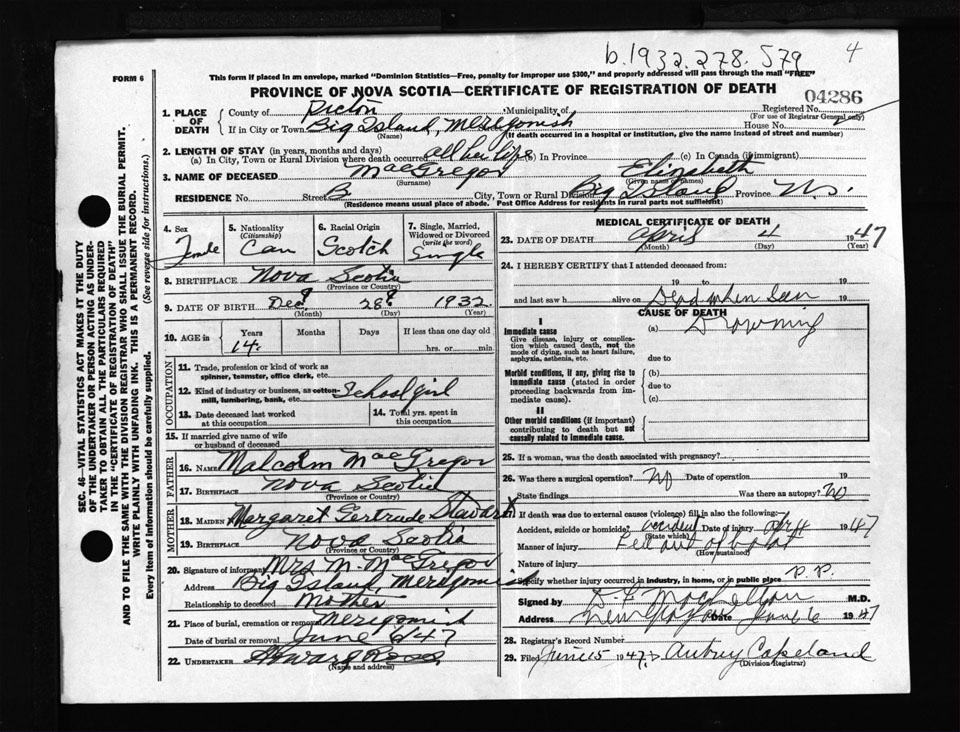 b.1932.278.579 4
FORM 6
This form if placed in an envelope, marked "Dominion Statistics—Free, penalty for improper use $300," and properly addressed will pass through the mail "FREE"
PROVINCE OF NOVA SCOTIA—CERTIFICATE OF REGISTRATION OF DEATH
04286
1. PLACE OF DEATH County of Pictou Municipality of Registered No.
(For use of Registrar General only)
If in City or Town Big Island, Merigomish House No.
(Name) (If death occurred in a hospital or institution, give the name instead of street and number)
2. LENGTH OF STAY (in years, months and days)
(a) In City, Town or Rural Division where death occurred all her life (b) In Province (c) In Canada (if immigrant)
3. NAME OF DECEASED MacGregor Elizabeth
(Surname) (Given name or names)
RESIDENCE No. Street B. City, Town or Rural Division Big Island Province N.S.
(Residence means usual place of abode. Post Office Address for residents in rural parts not sufficient)
4. Sex Female
5. Nationality (Citizenship) Can
6. Racial Origin Scotch
7. Single, Married, Widowed or Divorced (write the word) Single
8. BIRTHPLACE Nova Scotia
(Province or Country)
9. DATE OF BIRTH Dec 28 1932
(Month) (Day) (Year)
10. AGE in Years Months Days If less than one day old
14 hrs. or min.
OCCUPATION
11. Trade, profession or kind of work as spinner, teamster, office clerk, etc.
12. Kind of industry or business, as cotton-mill, lumbering, bank, etc. School girl
13. Date deceased last worked at this occupation
14. Total yrs. spent in this occupation
15. If married give name of wife or husband of deceased
FATHER
16. NAME Malcolm MacGregor
17. BIRTHPLACE Nova Scotia
(Province or Country)
MOTHER
18. MAIDEN Margaret Gertrude Stewart
19. BIRTHPLACE Nova Scotia
(Province or Country)
20. Signature of informant Mrs M. MacGregor
Address Big Island, Merigomish
Relationship to deceased Mother
21. Place of burial, cremation or removal Merigomish
Date of burial or removal June 6/47
22. UNDERTAKER Howard
(Name and address)
MEDICAL CERTIFICATE OF DEATH
23. DATE OF DEATH April 4 1947
(Month) (Day) (Year)
24. I HEREBY CERTIFY that I attended deceased from:
19 to 19
and last saw h alive on Dead when seen 19
CAUSE OF DEATH
I
Immediate cause (a) Drowning
Give disease, injury or complication which caused death, not the mode of dying, such as heart failure, asphyxia, asthenia, etc.
due to
Morbid conditions, if any, giving rise to immediate cause (stated in order proceeding backwards from immediate cause).
(b)
due to
(c)
II
Other morbid conditions (if important) contributing to death but not causally related to immediate cause.
25. If a woman, was the death associated with pregnancy?
26. Was there a surgical operation? No Date of operation 19
State findings Was there an autopsy? No
If death was due to external causes (violence) fill in also the following:
Accident, suicide or homicide? accident Date of injury Apr 4 1947
(State which)
Manner of injury Fell out of boat
(How sustained)
Nature of injury
Specify whether injury occurred in industry, in home, or in public place P.P.
Signed by M.D.
Address New Glasgow Date June 6 1947
28. Registrar's Record Number
29. Filed June 15 1947 Aubrey Copeland
(Division Registrar)
SEC. 46—VITAL STATISTICS ACT MAKES IT THE DUTY
OF THE UNDERTAKER OR PERSON ACTING AS UNDER-
TAKER TO OBTAIN ALL THE PARTICULARS REQUIRED
IN THE "CERTIFICATE OF REGISTRATION OF DEATH"
AND TO FILE THE SAME WITH THE DIVISION REGISTRAR WHO SHALL ISSUE THE BURIAL PERMIT.
WRITE PLAINLY WITH UNFADING INK. THIS IS A PERMANENT RECORD.
Every item of information should be carefully supplied. (See reverse side for instructions.)